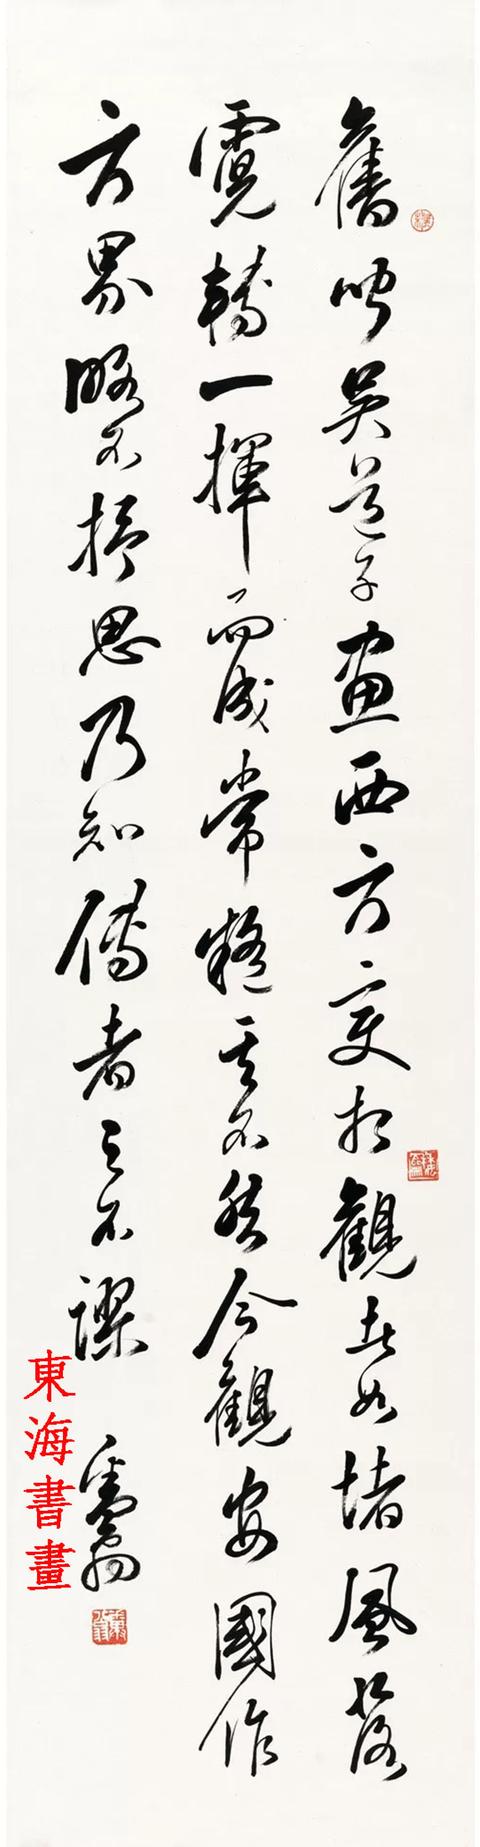 舊聞吳道子畫西方變相觀者如堵風落
電轉一揮而成常疑其不然今觀安國作
方界略不抒思乃知傳者之不謬
東海書畫